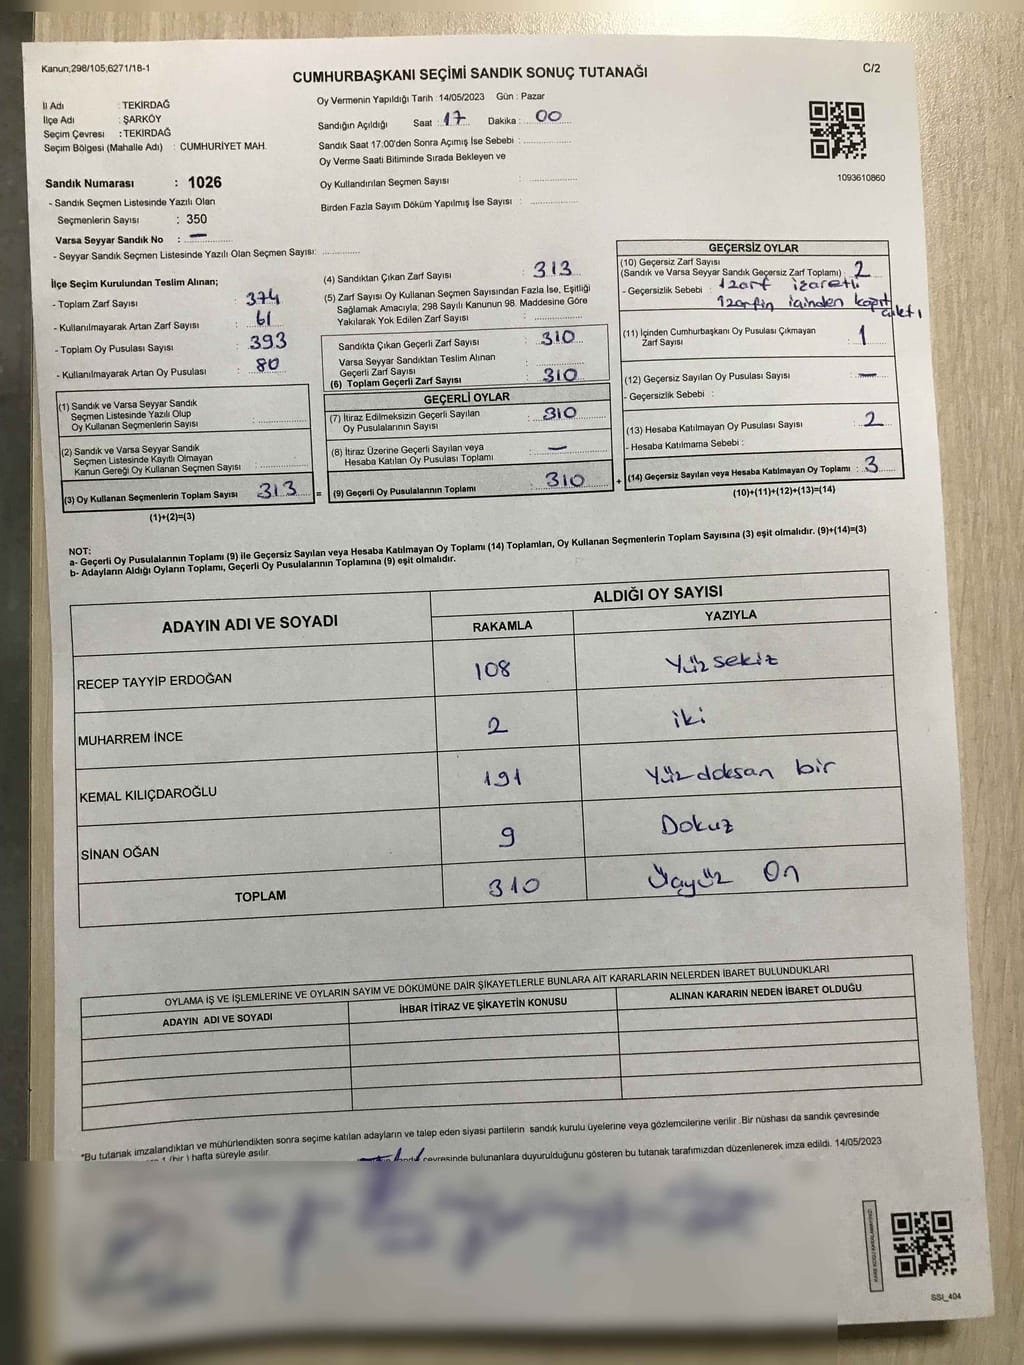 Kanun;298/105,6271/18-1
C/2
CUMHURBAŞKANI SEÇİMİ SANDIK SONUÇ TUTANAĞI
İl Adı : TEKİRDAĞ
İlçe Adı : ŞARKÖY
Seçim Çevresi : TEKİRDAĞ
Seçim Bölgesi (Mahalle Adı) : CUMHURİYET MAH.
Sandık Numarası : 1026
- Sandık Seçmen Listesinde Yazılı Olan
Seçmenlerin Sayısı : 350
Varsa Seyyar Sandık No : —
- Seyyar Sandık Seçmen Listesinde Yazılı Olan Seçmen Sayısı:
Oy Vermenin Yapıldığı Tarih : 14/05/2023 Gün : Pazar
Sandığın Açıldığı Saat : 17 Dakika : 00
Sandık Saat 17:00'den Sonra Açımış İse Sebebi :
Oy Verme Saati Bitiminde Sırada Bekleyen ve
Oy Kullandırılan Seçmen Sayısı :
Birden Fazla Sayım Döküm Yapılmış İse Sayısı :
1093610860
İlçe Seçim Kurulundan Teslim Alınan;
- Toplam Zarf Sayısı : 374
- Kullanılmayarak Artan Zarf Sayısı : 61
- Toplam Oy Pusulası Sayısı : 393
- Kullanılmayarak Artan Oy Pusulası : 80
(1) Sandık ve Varsa Seyyar Sandık
Seçmen Listesinde Yazılı Olup
Oy Kullanan Seçmenlerin Sayısı :
(2) Sandık ve Varsa Seyyar Sandık
Seçmen Listesinde Kayıtlı Olmayan
Kanun Gereği Oy Kullanan Seçmen Sayısı :
(3) Oy Kullanan Seçmenlerin Toplam Sayısı : 313 =
(1)+(2)=(3)
(4) Sandıktan Çıkan Zarf Sayısı : 313
(5) Zarf Sayısı Oy Kullanan Seçmen Sayısından Fazla İse, Eşitliği
Sağlamak Amacıyla; 298 Sayılı Kanunun 98. Maddesine Göre
Yakılarak Yok Edilen Zarf Sayısı :
Sandıkta Çıkan Geçerli Zarf Sayısı : 310
Varsa Seyyar Sandıktan Teslim Alınan
Geçerli Zarf Sayısı :
(6) Toplam Geçerli Zarf Sayısı : 310
GEÇERLİ OYLAR
(7) İtiraz Edilmeksizin Geçerli Sayılan
Oy Pusulalarının Sayısı : 310
(8) İtiraz Üzerine Geçerli Sayılan veya
Hesaba Katılan Oy Pusulası Toplamı : —
(9) Geçerli Oy Pusulalarının Toplamı : 310 +
GEÇERSİZ OYLAR
(10) Geçersiz Zarf Sayısı
(Sandık ve Varsa Seyyar Sandık Geçersiz Zarf Toplamı) : 2
- Geçersizlik Sebebi : 1 zarf işaretli
1 zarfın içinden kağıt çıktı
(11) İçinden Cumhurbaşkanı Oy Pusulası Çıkmayan
Zarf Sayısı : 1
(12) Geçersiz Sayılan Oy Pusulası Sayısı : —
- Geçersizlik Sebebi :
(13) Hesaba Katılmayan Oy Pusulası Sayısı : 2
- Hesaba Katılmama Sebebi :
(14) Geçersiz Sayılan veya Hesaba Katılmayan Oy Toplamı : 3
(10)+(11)+(12)+(13)=(14)
NOT:
a- Geçerli Oy Pusulalarının Toplamı (9) ile Geçersiz Sayılan veya Hesaba Katılmayan Oy Toplamı (14) Toplamları, Oy Kullanan Seçmenlerin Toplam Sayısına (3) eşit olmalıdır. (9)+(14)=(3)
b- Adayların Aldığı Oyların Toplamı, Geçerli Oy Pusulalarının Toplamına (9) eşit olmalıdır.
ADAYIN ADI VE SOYADI ALDIĞI OY SAYISI
RAKAMLA YAZIYLA
RECEP TAYYİP ERDOĞAN 108 Yüzsekiz
MUHARREM İNCE 2 iki
KEMAL KILIÇDAROĞLU 191 Yüzdoksan bir
SİNAN OĞAN 9 Dokuz
TOPLAM 310 Üçyüz On
OYLAMA İŞ VE İŞLEMLERİNE VE OYLARIN SAYIM VE DÖKÜMÜNE DAİR ŞİKAYETLERLE BUNLARA AİT KARARLARIN NELERDEN İBARET BULUNDUKLARI
ADAYIN ADI VE SOYADI İHBAR İTİRAZ VE ŞİKAYETİN KONUSU ALINAN KARARIN NEDEN İBARET OLDUĞU
*Bu tutanak imzalandıktan ve mühürlendikten sonra seçime katılan adayların ve talep eden siyasi partilerin sandık kurulu üyelerine veya gözlemcilerine verilir. Bir nüshası da sandık çevresinde
1 (bir ) hafta süreyle asılır.
çevresinde bulunanlara duyurulduğunu gösteren bu tutanak tarafımızdan düzenlenerek imza edildi. 14/05/2023
SSI_404